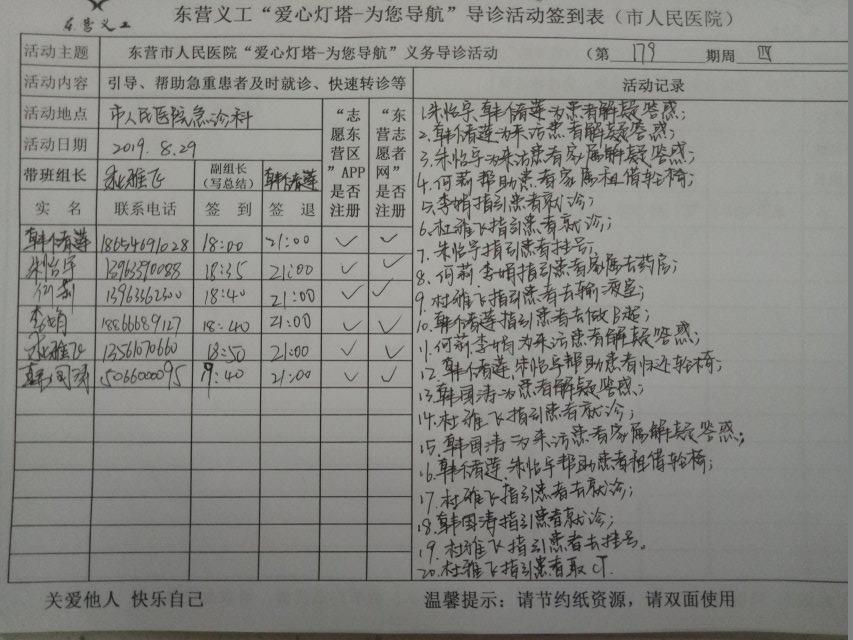 东营义工
东营义工“爱心灯塔-为您导航”导诊活动签到表（市人民医院）
活动主题 东营市人民医院“爱心灯塔-为您导航”义务导诊活动 （第 179 期周 四
活动内容 引导、帮助急重患者及时就诊、快速转诊等 活动记录
活动地点 市人民医院急诊科 “志愿东营区”APP是否注册 “东营志愿者网”是否注册
活动日期 2019.8.29
带班组长 杜雅飞 副组长（写总结） 韩春莲
实 名 联系电话 签 到 签 退
韩春莲 18654691028 18:00 21:00 ✓ ✓
朱怡宇 13963390088 18:35 21:00 ✓ ✓
何莉 13963362300 18:40 21:00 ✓ ✓
李娟 18866689127 18:40 21:00 ✓ ✓
杜雅飞 13561070660 18:50 21:00 ✓ ✓
韩国涛 15066000095 19:40 21:00 ✓ ✓
1.朱怡宇、韩春莲为患者解疑答惑；
2.韩春莲为来访患者解疑答惑；
3.朱怡宇为来访患者家属解疑答惑；
4.何莉帮助患者家属租借轮椅；
5.李娟指引患者就诊；
6.杜雅飞指引患者就诊；
7.朱怡宇指引患者挂号；
8.何莉、李娟指引患者家属去药房；
9.杜雅飞指引患者去输液室；
10.韩春莲指引患者去做B超；
11.何莉、李娟为来访患者解疑答惑；
12.韩春莲、朱怡宇帮助患者归还轮椅；
13.韩国涛为患者解疑答惑；
14.杜雅飞指引患者就诊；
15.韩国涛为来访患者家属解疑答惑；
16.韩春莲、朱怡宇帮助患者租借轮椅；
17.杜雅飞指引患者去就诊；
18.韩国涛指引患者就诊；
19.杜雅飞指引患者去挂号。
20.杜雅飞指引患者取CT.
关爱他人 快乐自己 温馨提示：请节约纸资源，请双面使用